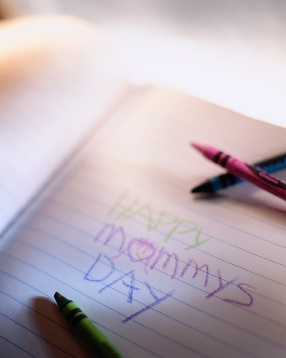 HAPPY
MOMMYS
DAY